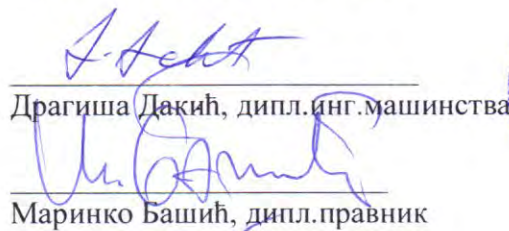 Драгиша Дакић, дипл.инг.машинства
Маринко Башић, дипл.правник